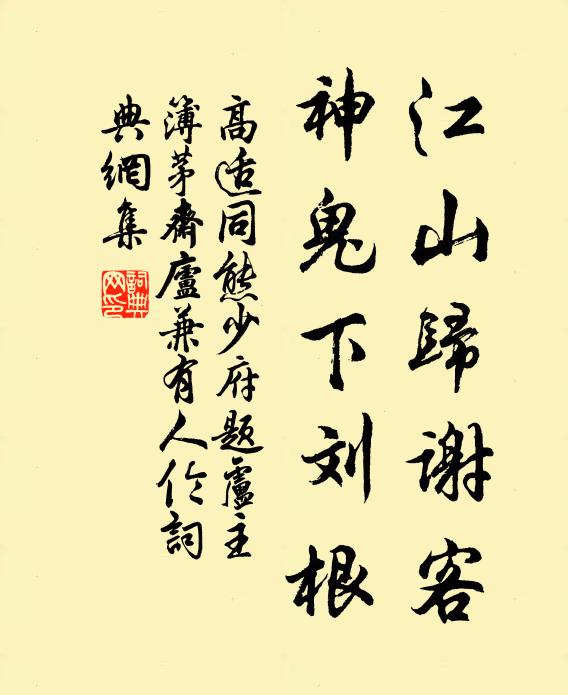 江山歸謝客
神鬼下刘根
高适同熊少府题盧主
簿茅齋廬兼有人伦詞
典網集
詞典网印